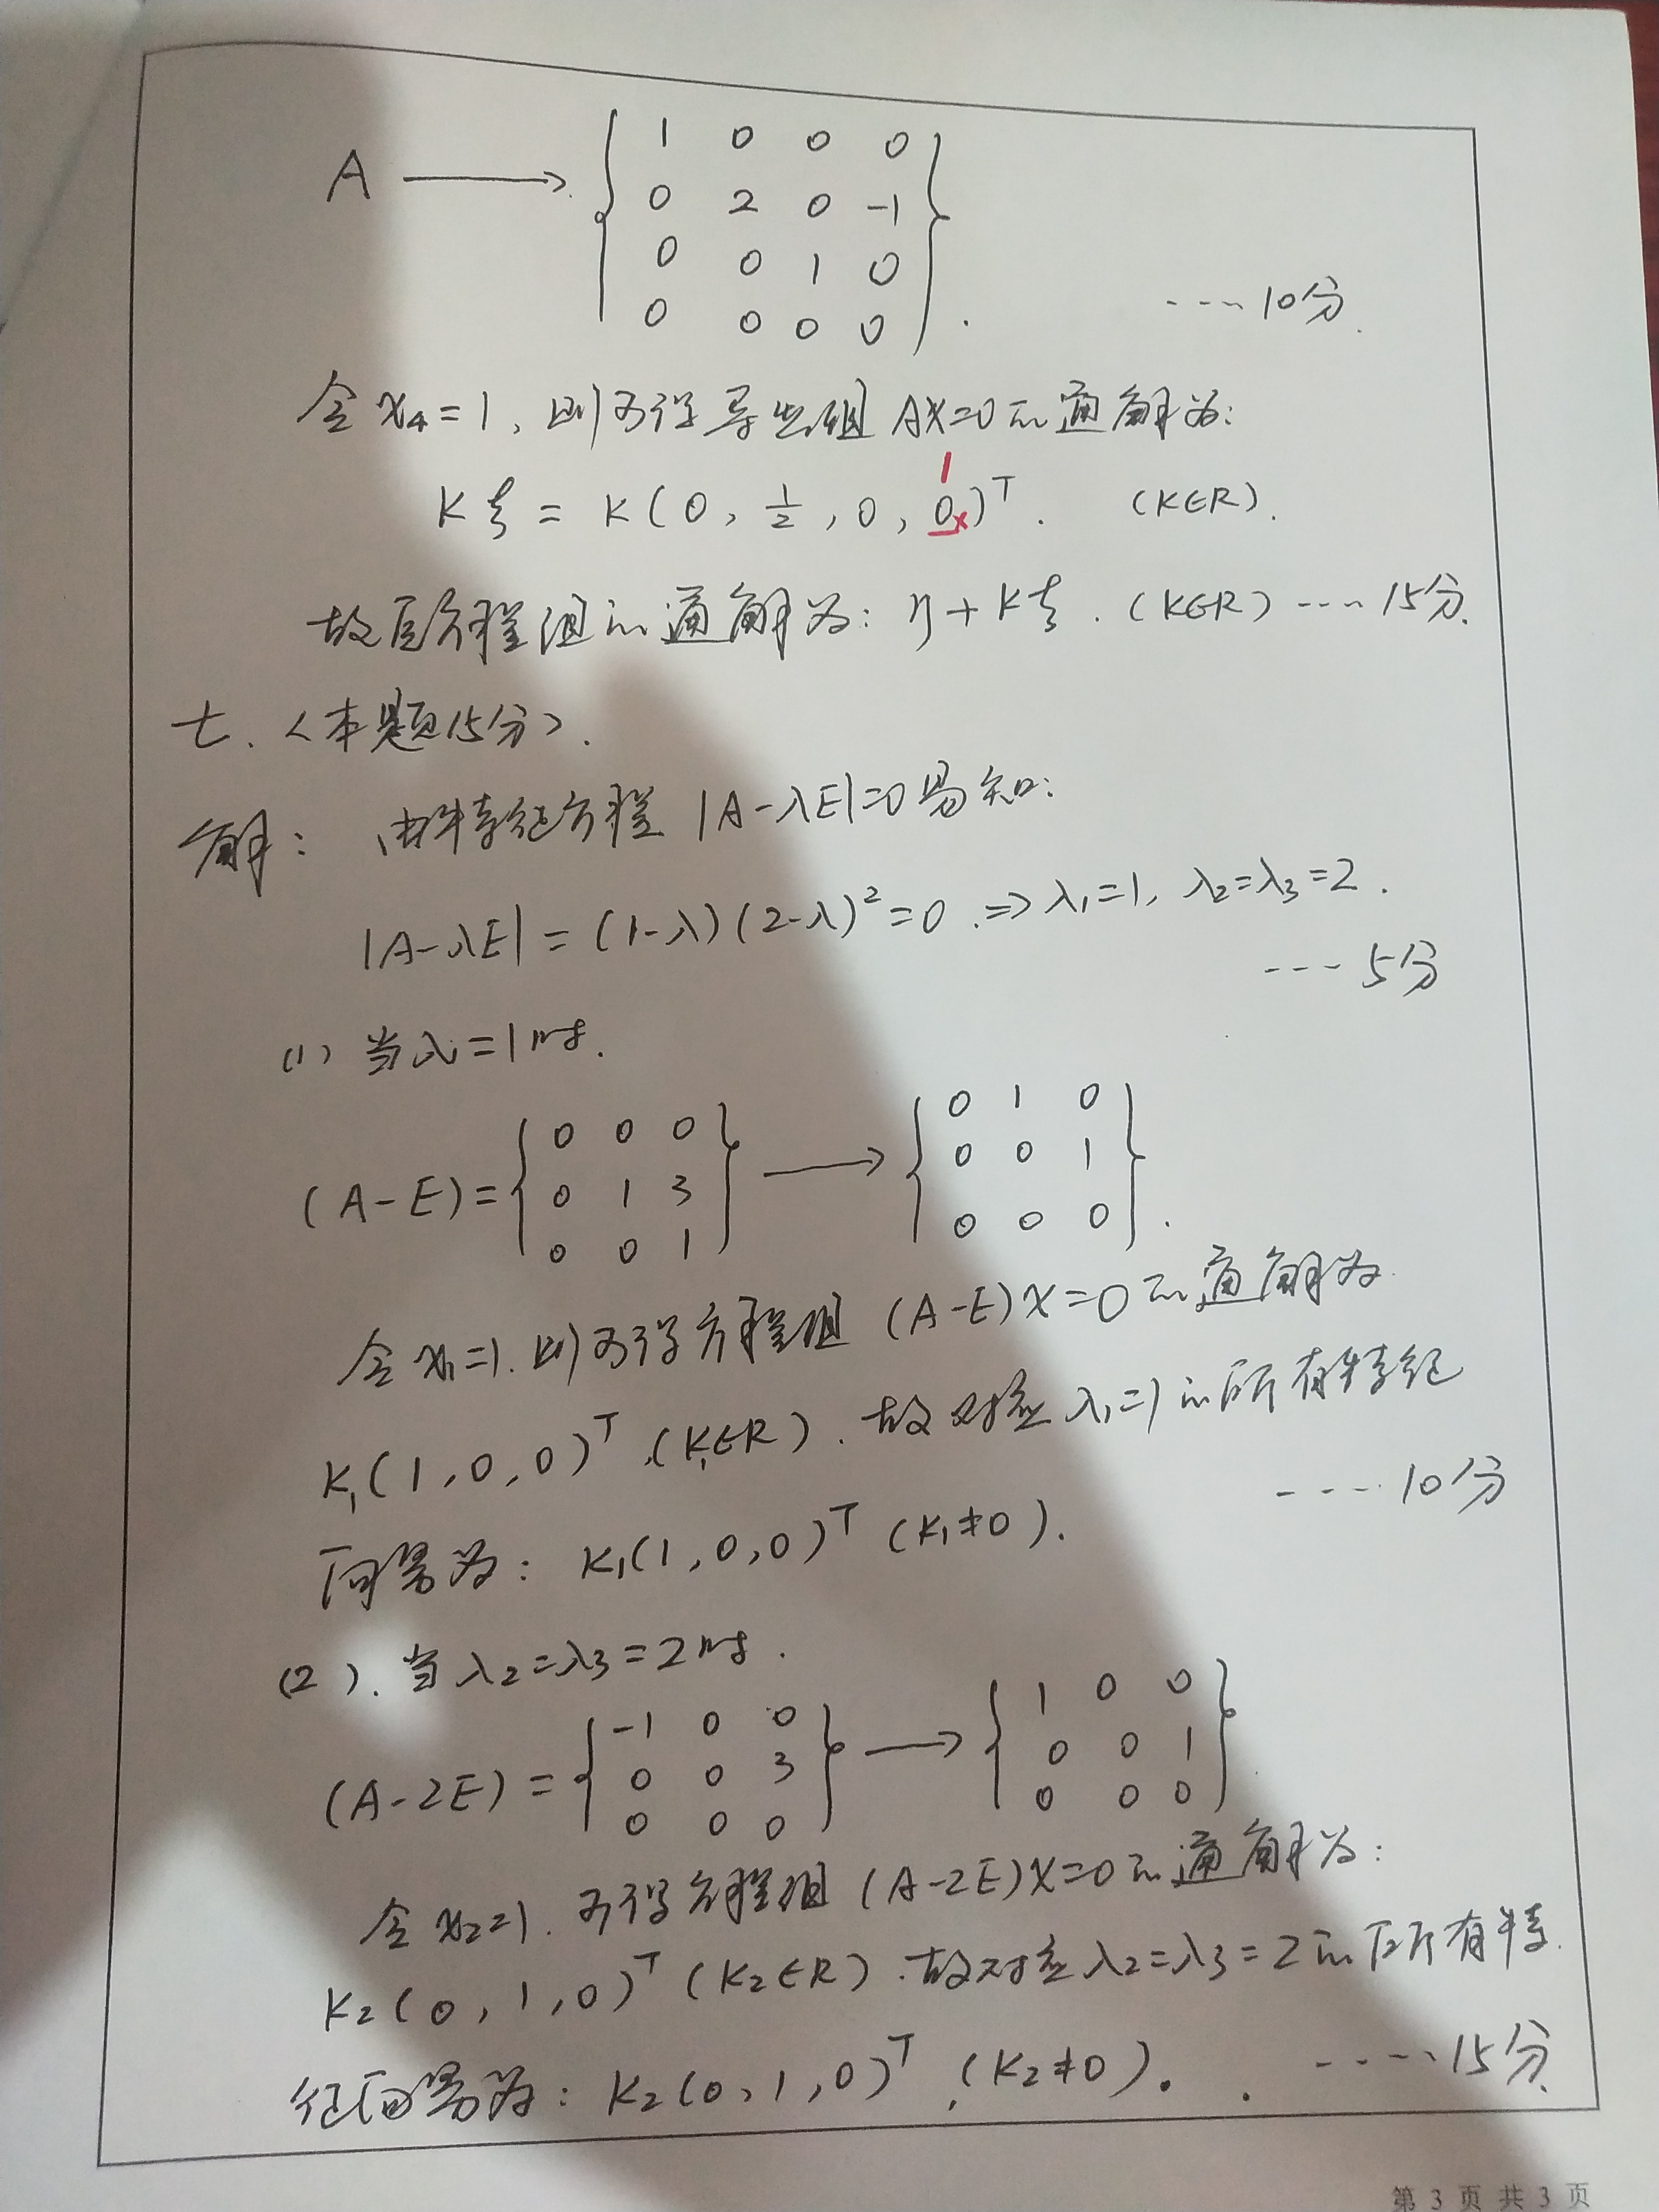 A → { 1 0 0 0
0 2 0 -1
0 0 1 0
0 0 0 0 }.
----10分.
令x₄=1, 则可得导出组AX=0的通解为:
1
Kξ = K(0, ½, 0, 0x)ᵀ. (K∈R).
故原方程组的通解为: η+Kξ. (K∈R) ---- 15分.
七. <本题15分>.
解: 由特征方程 |A-λE|=0易知:
|A-λE| = (1-λ)(2-λ)²=0 .⇒ λ₁=1, λ₂=λ₃=2.
---5分
(1) 当λ₁=1时.
(A-E)= { 0 0 0
0 1 3
0 0 1 } → { 0 1 0
0 0 1
0 0 0 }.
令x₁=1. 则可得方程组 (A-E)X=0的通解为
K₁(1,0,0)ᵀ.(K₁∈R). 故对应λ₁=1的所有特征
---- 10分
向量为: K₁(1,0,0)ᵀ (K₁≠0).
(2). 当λ₂=λ₃=2时.
(A-2E) = { -1 0 0
0 0 3
0 0 0 } → { 1 0 0
0 0 1
0 0 0 }
令x₂=1. 可得方程组 (A-2E)X=0的通解为:
K₂(0,1,0)ᵀ (K₂∈R). 故对应λ₂=λ₃=2的所有特
征向量为: K₂(0,1,0)ᵀ, (K₂≠0). ----15分.
第 3 页 共 3 页